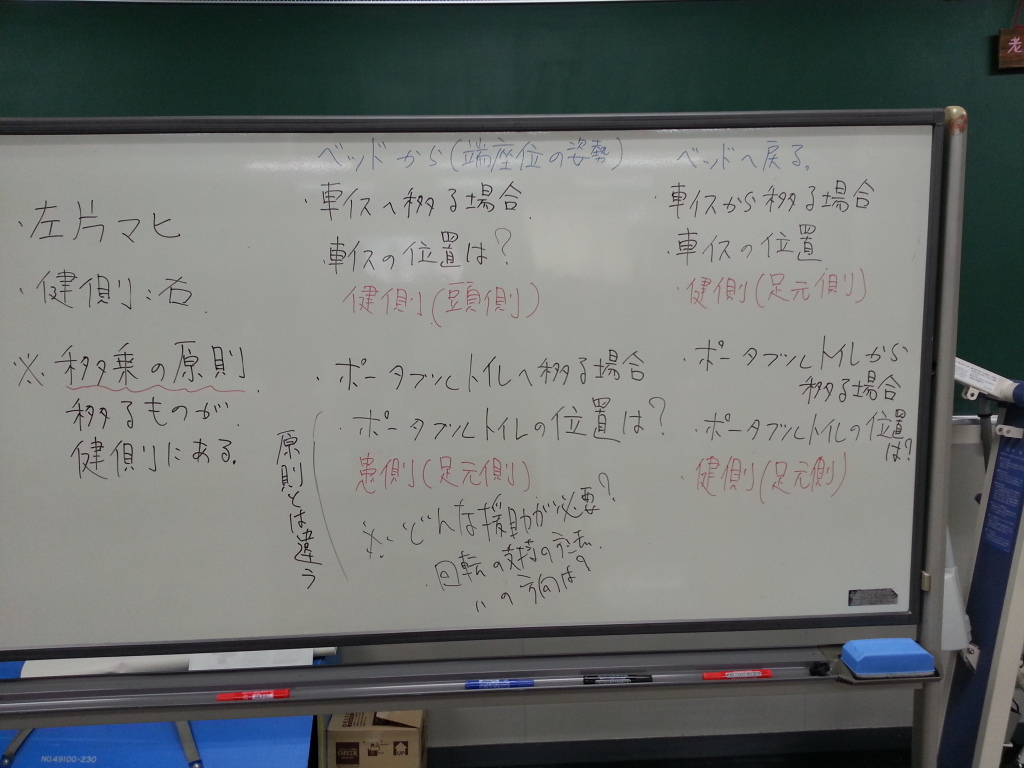 ・左片マヒ
・健側：右
※ 移乗の原則
移るものが
健側にある。
ベッドから(端座位の姿勢)
・車イスへ移る場合
車イスの位置は?
健側(頭側)
・ポータブルトイレへ移る場合
・ポータブルトイレの位置は?
患側(足元側)
原則とは違う
※・どんな援助が必要?
・回転の支持の方法
〃の方向は?
ベッドへ戻る。
・車イスから移る場合
・車イスの位置
・健側(足元側)
・ポータブルトイレから
移る場合
・ポータブルトイレの位置
は?
・健側(足元側)
老
NO.49100-230